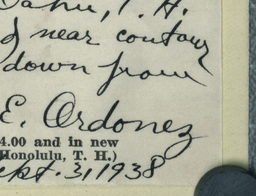 Oahu, T. H.
near contour
down from
E. Ordonez
4.00 and in new
Honolulu, T. H.)
Sept. 3, 1938